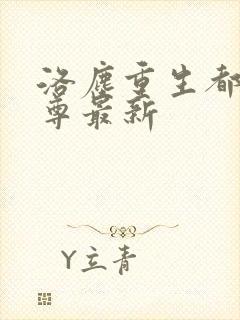 洛尘重生都
尊最新
Y立青